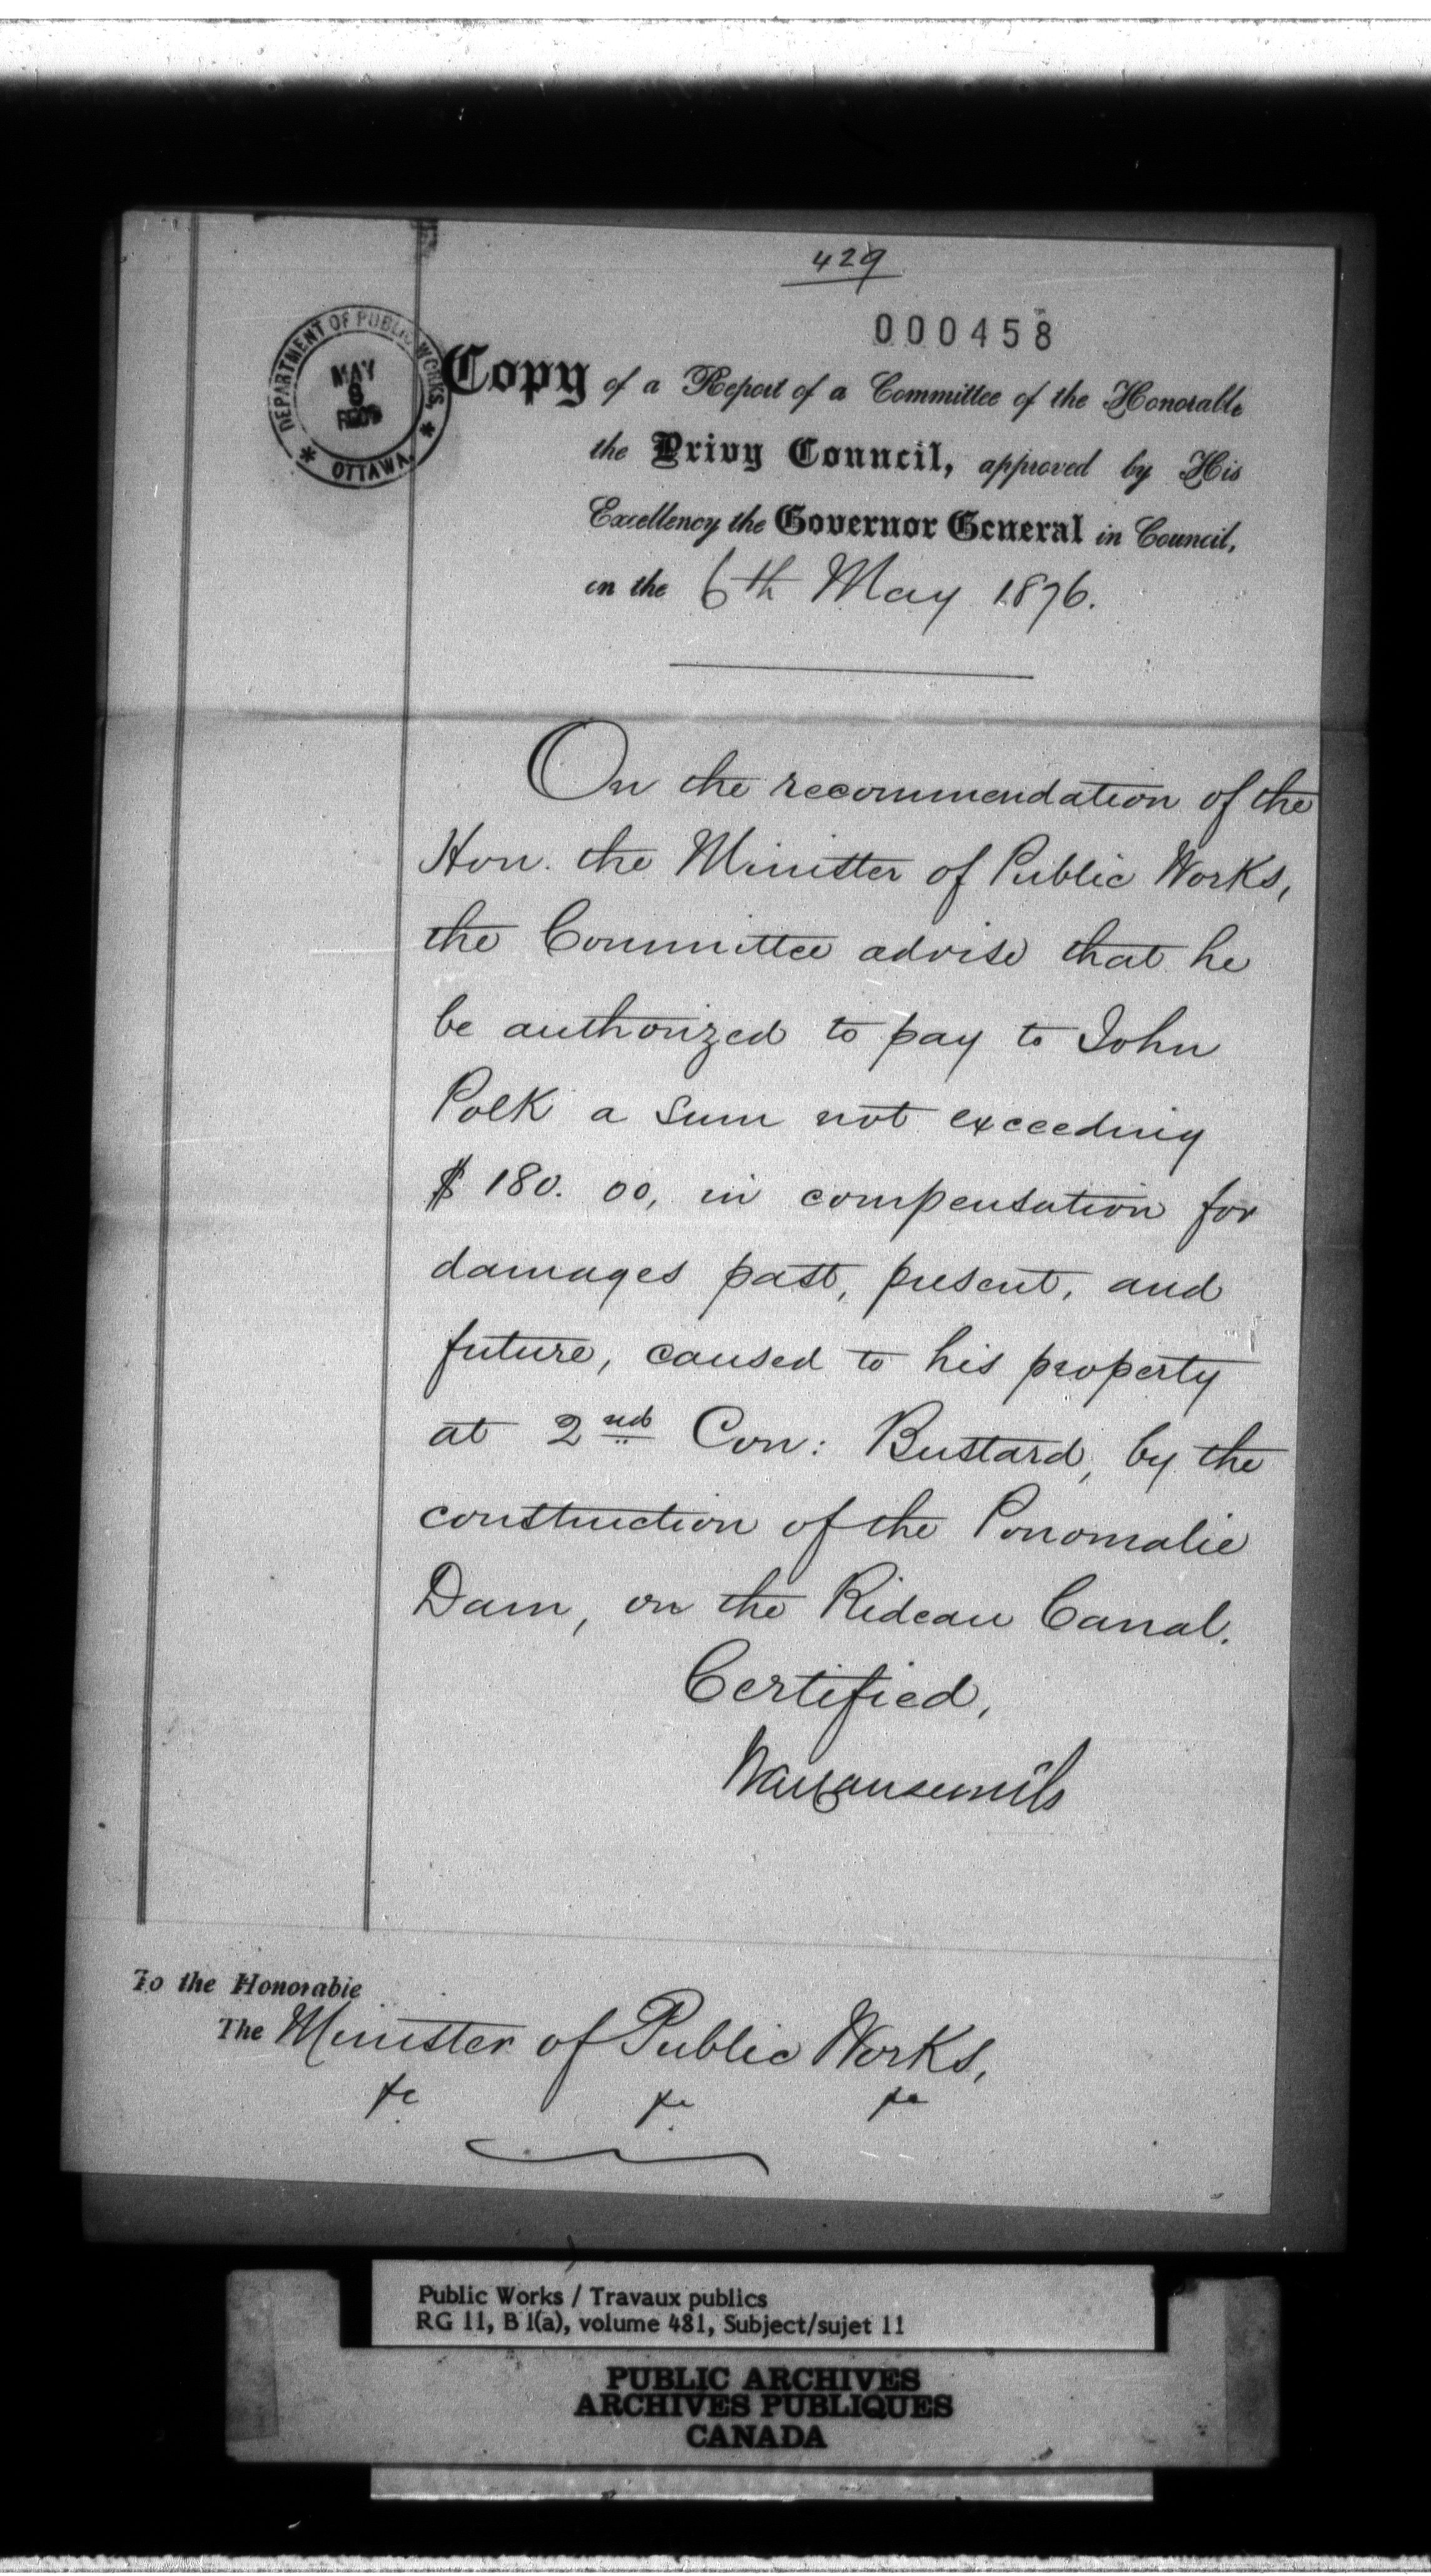 429
000458
DEPARTMENT OF PUBLIC WORKS,
MAY
6
* OTTAWA. *
Copy of a Report of a Committee of the Honorable
the Privy Council, approved by His
Excellency the Governor General in Council,
on the 6th May 1876.
On the recommendation of the
Hon. the Minister of Public Works,
the Committee advise that he
be authorized to pay to John
Polk a sum not exceeding
$180.00, in compensation for
damages past, present, and
future, caused to his property
at 2nd Con: Bustard, by the
construction of the Ponomalie
Dam, on the Rideau Canal.
Certified,
To the Honorable
The Minister of Public Works,
&c &c &c
Public Works / Travaux publics
RG 11, B 1(a), volume 481, Subject/sujet 11
PUBLIC ARCHIVES
ARCHIVES PUBLIQUES
CANADA